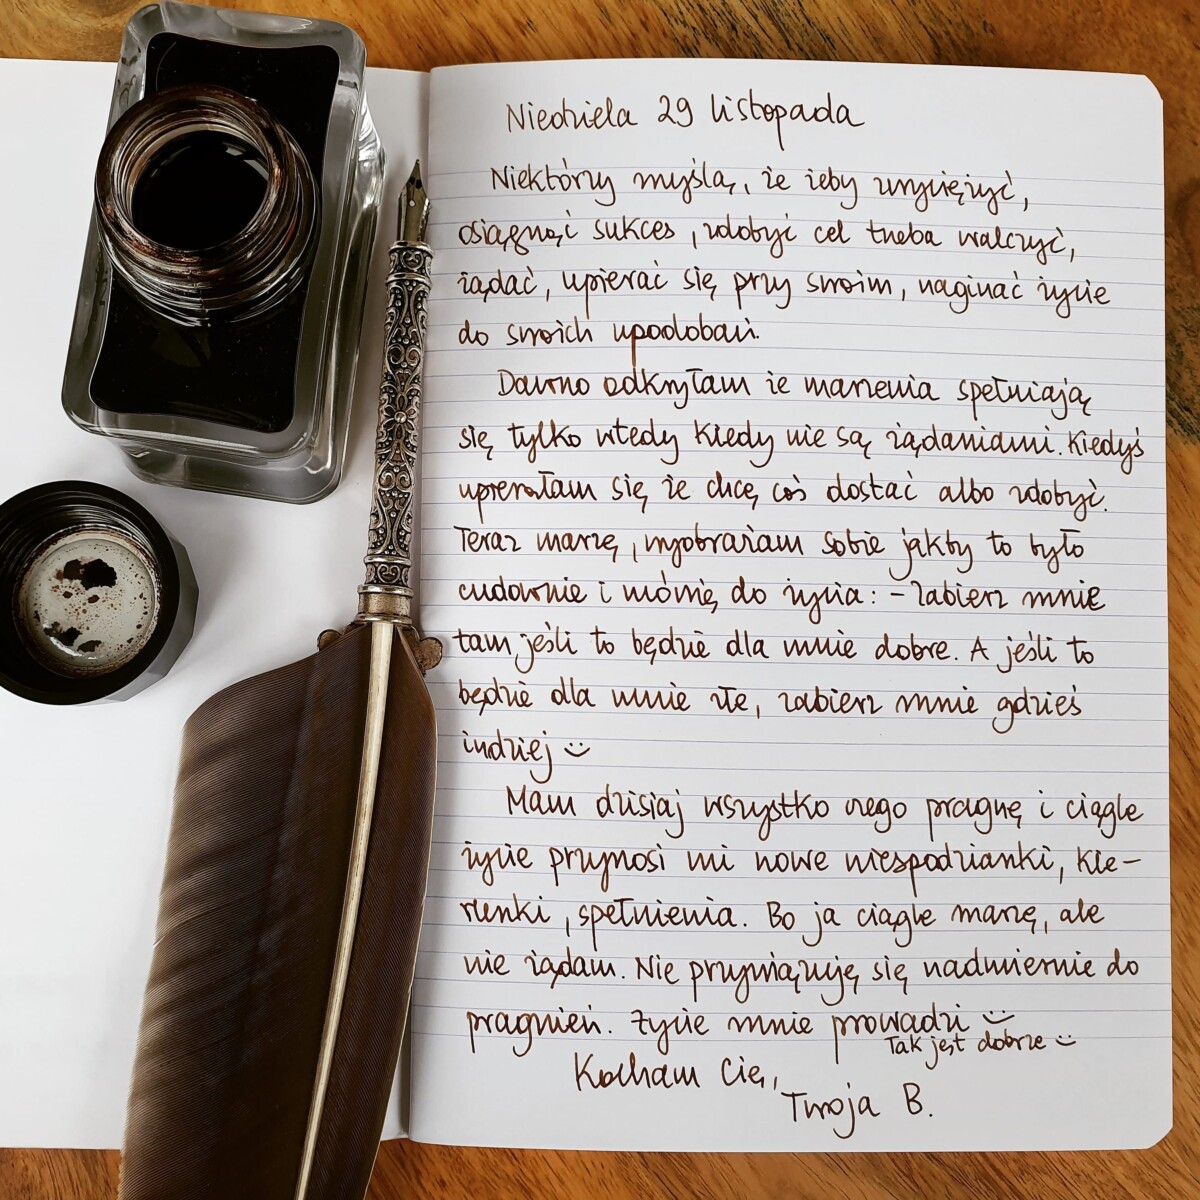 Niedziela 29 listopada
Niektórzy myślą, że żeby zwyciężyć,
osiągnąć sukces, zdobyć cel trzeba walczyć,
żądać, upierać się przy swoim, naginać życie
do swoich upodobań.
Dawno odkryłam że marzenia spełniają
się tylko wtedy kiedy nie są żądaniami. Kiedyś
upierałam się że chcę coś dostać albo zdobyć.
Teraz marzę, wyobrażam sobie jakby to było
cudownie i mówię do życia: - Zabierz mnie
tam jeśli to będzie dla mnie dobre. A jeśli to
będzie dla mnie złe, zabierz mnie gdzieś
indziej :)
Mam dzisiaj wszystko czego pragnę i ciągle
życie przynosi mi nowe niespodzianki, kie-
runki, spełnienia. Bo ja ciągle marzę, ale
nie żądam. Nie przywiązuję się nadmiernie do
pragnień. Życie mnie prowadzi :)
Tak jest dobrze :)
Kocham Cię,
Twoja B.